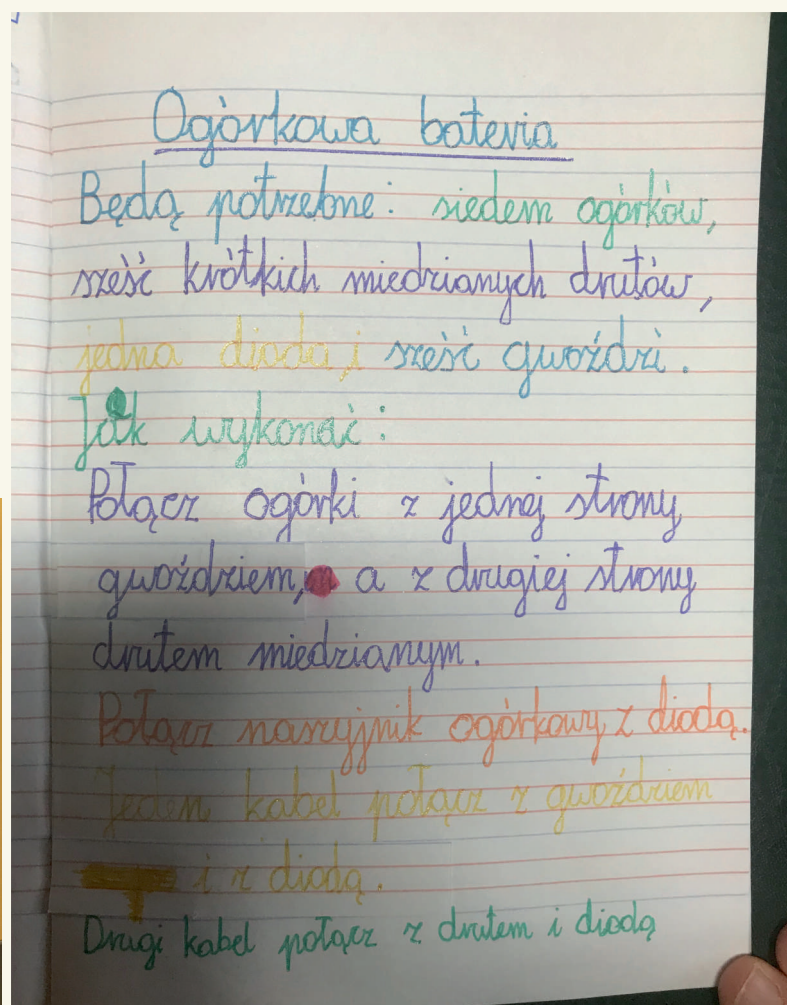 Ogórkowa bateria
Będą potrzebne: siedem ogórków,
sześć krótkich miedzianych drutów,
jedna dioda, i sześć gwoździ.
Jak wykonać:
Połącz ogórki z jednej strony
gwoździem, a z drugiej strony
drutem miedzianym.
Połącz naszyjnik ogórkowy z diodą.
Jeden kabel połącz z gwoździem
i z diodą.
Drugi kabel połącz z drutem i diodą